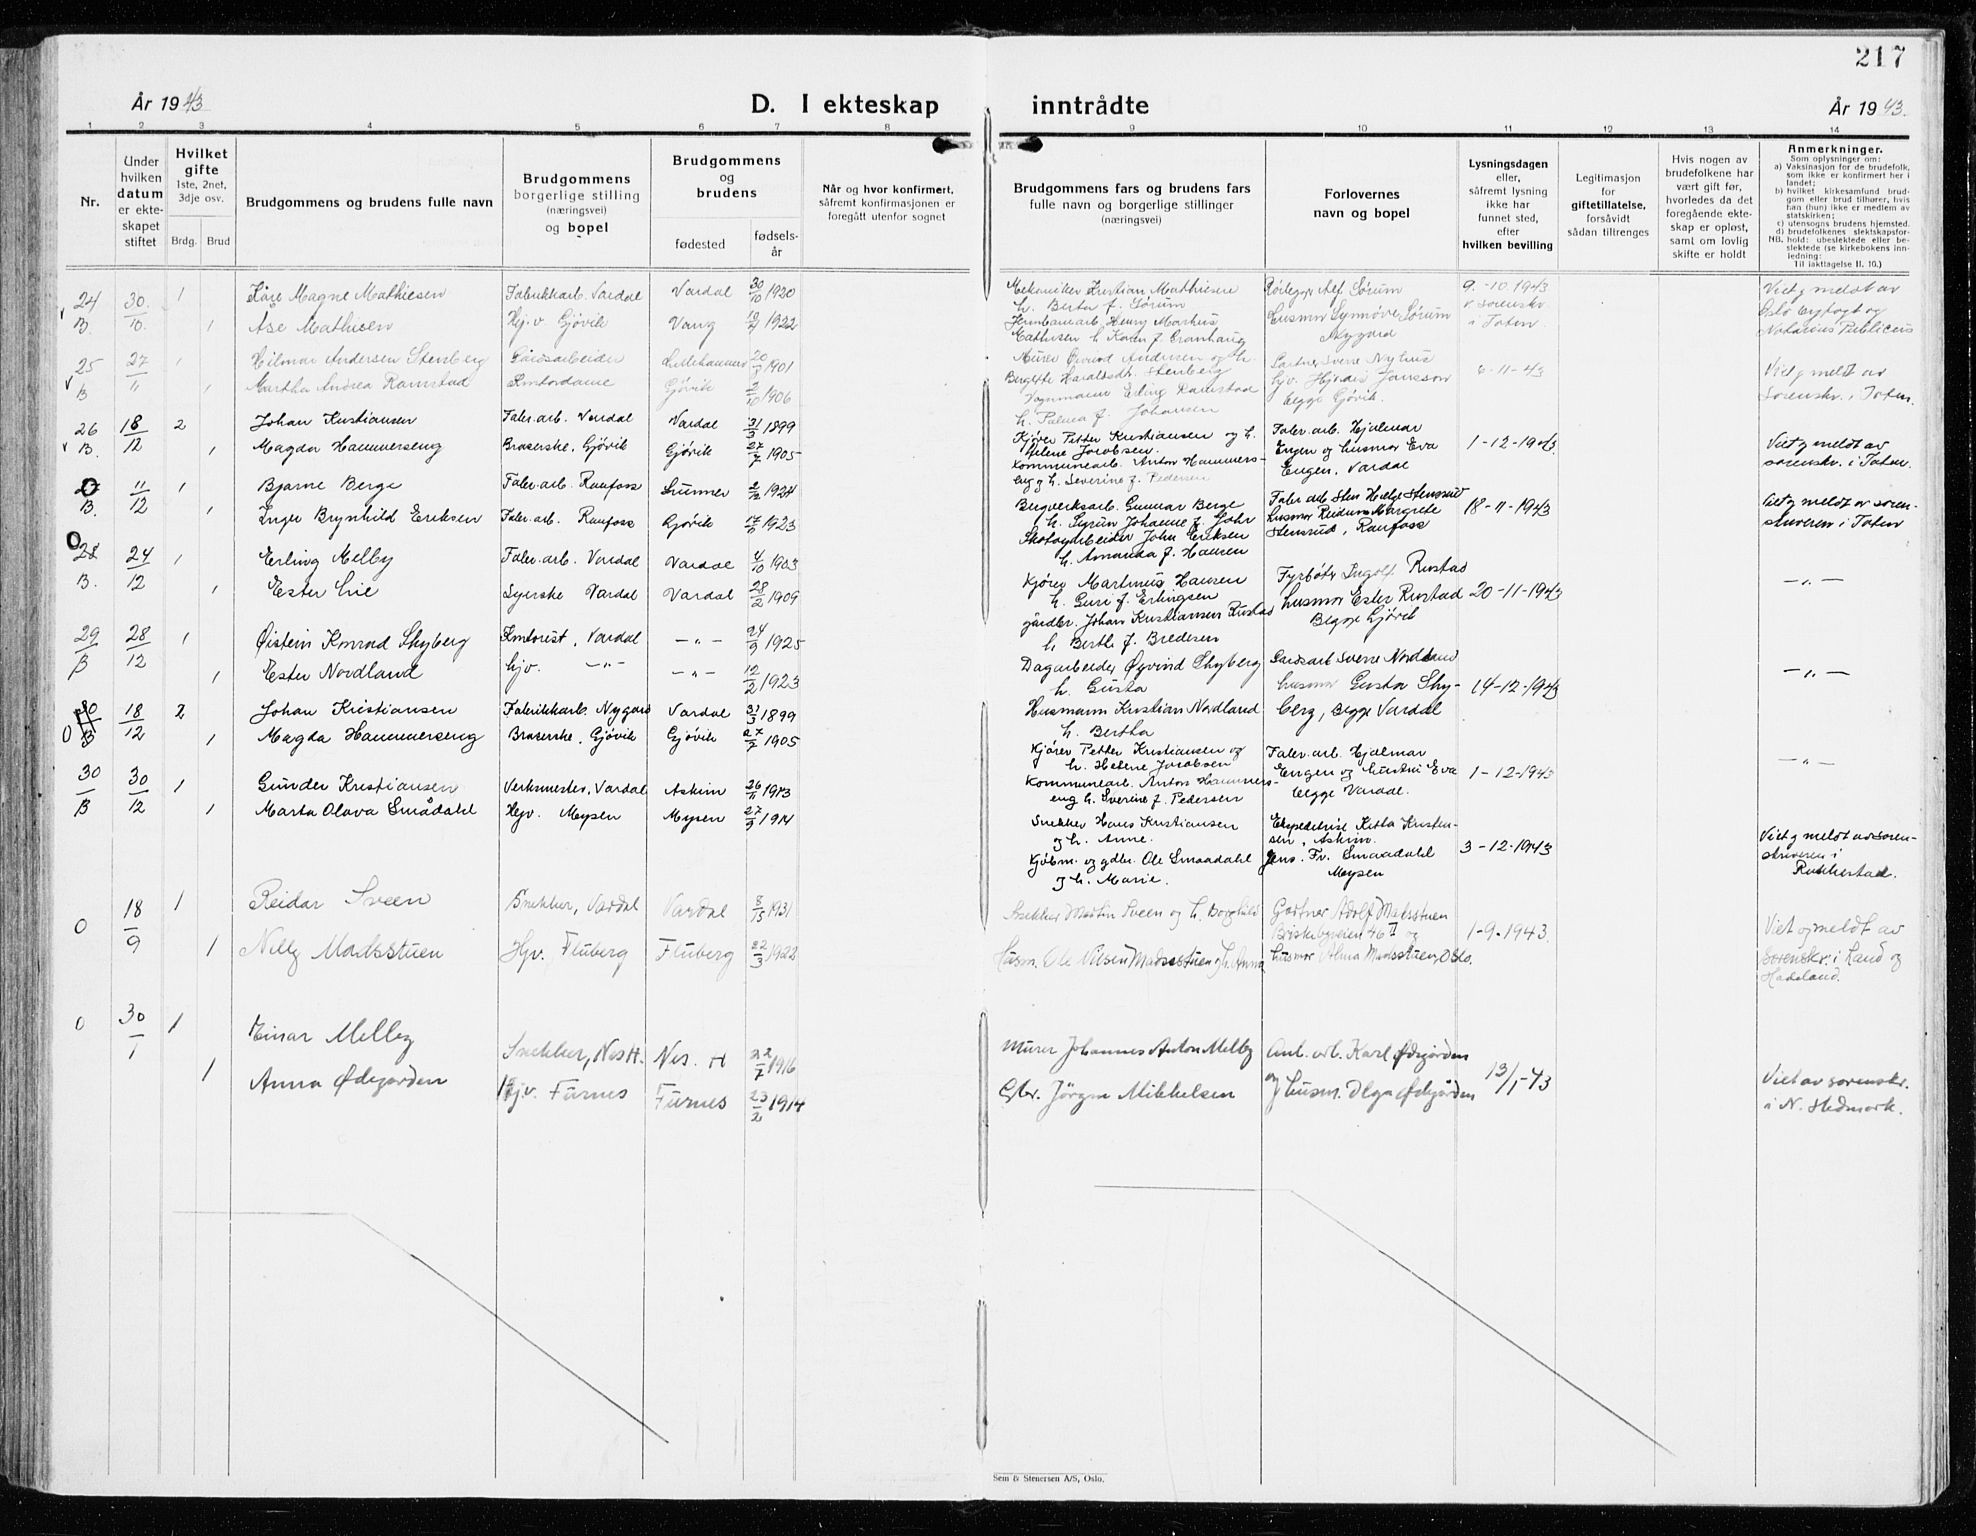 217
År 1943
D. I ekteskap inntrådte
År 1943.
1 2 3 4 5 6 7 8 9 10 11 12 13 14
Nr.
Under hvilken datum er ekteskapet stiftet
Hvilket gifte
1ste, 2net, 3dje osv.
Brdg. Brud
Brudgommens og brudens fulle navn
Brudgommens borgerlige stilling (næringsvei) og bopel
Brudgommens og brudens
fødested
fødselsår
Når og hvor konfirmert, såfremt konfirmasjonen er foregått utenfor sognet
Brudgommens fars og brudens fars fulle navn og borgerlige stillinger (næringsvei)
Forlovernes navn og bopel
Lysningsdagen eller, såfremt lysning ikke har funnet sted, efter hvilken bevilling
Legitimasjon for giftetillatelse, forsåvidt sådan tiltrenges
Hvis nogen av brudefolkene har vært gift før, hvorledes da det foregående ekteskap er opløst, samt om lovlig skifte er holdt
Anmerkninger.
Som oplysninger om:
a) Vaksinasjon for de brudefolk, som ikke er konfirmert her i landet;
b) hvilket kirkesamfund brudgom eller brud tilhører, hvis han (hun) ikke er medlem av statskirken;
c) utensogns brudens hjemsted.
d) brudefolkenes slektskapsforhold: ubeslektede eller beslektede (se kirkebokens innledning:
NB.
Til iakttagelse II. 10.)
24 B. 30/10. 1 Kåre Magne Mathiesen Fabrikkarb. Vardal Vardal 30/10 1920 Mekaniker Kristian Mathiesen Alf Sørum 9.-10.1943 Viet g meldt av
h. Berta f. Sørum v sorenskr. Oslo byfogt og
1 Åse Mathisen Hj.v. Gjøvik Vang 1922 Henry Markus Husmor Synnøve Sørum i Toten Notarius Publicus
Mathisen h. Karen f. Tranhaug Nygard
25 B 27/11 1 Hilmar Andersen Stenberg Gårdsarbeider Lillehammer 1901 Murer Andersen og h. Sverre Nyhus 6-11-43 Viet g meldt av
1 Martha Andrea Ramstad Kontordame Gjøvik 1906 Bergitte Haraldsdtr. Stenberg hjv. Hjørdis Jansson Sorenskr. i Toten.
Vognmann Erling Ramstad begge Gjøvik.
h. Palma f. Johansen
26 B. 18/12 2 Johan Kristiansen Fabr. arb. Vardal Vardal 31/3 1899 Kjører Petter Kristiansen og h. Fabr. arb. Hjalmar 1-12-1943 Viet g meldt av
Helene Jacobsen. Engen og husmor Eva sorenskr. i Toten.
1 Magda Hammerseng Braserske, Gjøvik Gjøvik 27/7 1905 Kommunearb. Anton Hammers- Engen, Vardal
eng g h. Severine f. Pedersen
27 B. 11/12 1 Bjarne Berge Fabr. arb. Raufoss Lunner 2/2 1924 Bergverksarb. Gunnar Berge Fabr arb Sten Helge Stensrud 18-11-1943 Viet g meldt av soren-
h. Syrun Johanne f. Gohr husmor Reidun Margrete skriveren i Toten
1 Inger Brynhild Eriksen Fabr. arb. Raufoss Gjøvik 17/11 1923 Skotøyarbeider John Eriksen Stensrud, Raufoss
h. Amanda f. Hansen
28 B. 24/12 1 Erling Melby Fabr. arb. Vardal Vardal 4/10 1903 Kjører Martinus Hansen Fyrbøter Ingolf Rustad 20-11-1943 —„—
h. Guri f. Erlingsen husmor Ester Rustad
1 Ester Lie Syerske Vardal Vardal 28/2 1909 gårdbr. Johan Kristiansen Rustad Begge Gjøvik
h. Berthe f. Bredesen
29 B 28/12 1 Øistein Konrad Skyberg Kontorist, Vardal —„— 24/9 1925 Dagarbeider Øyvind Skyberg Gardsarb Sverre Nordland 14-12-1943 —„—
h. Gusta husmor Gusta Sky-
1 Ester Nordland hjv. —„— —„— 12/2 1923 Husmann Kristian Nordland berg, Begge Vardal
h. Bertha
30 B 18/12 2 Johan Kristiansen Fabrikkarb. Nygard Vardal 31/3 1899 Kjører Petter Kristiansen og Fabr. arb. Hjalmar 1-12-1943 —„—
h. Helene Jacobsen Engen og hustru Eva
1 Magda Hammerseng Braserske, Gjøvik Gjøvik 27/7 1905 Kommunearb. Anton Hammers- begge Vardal.
eng h. Sverine f. Pedersen
30 B 30/12 1 Gunder Kristiansen Verksmester, Vardal Askim 26/11 1913 Snekker Hans Kristiansen Ekspeditrise Kitta Kristen- 3-12-1943 Viet g meldt av soren-
og h. Anne. sen, Askim. skriveren i
1 Marta Olava Smådahl Hjv. Mysen Mysen 27/9 1914 Kjøbm. og gdbr. Ole Smaadahl Jens. Fr. Smaadahl Rakkestad.
og h. Marie. Mysen
0 18/9 1 Reidar Sveen Snekker, Vardal Vardal 8/15 1931 Snekker Martin Sveen og h. Borghild Gartner Adolf Madsstuen 1-9-1943. Viet og meldt av
Briskebyveien 46 II og Sorenskr. i Land og
1 Nelly Madsstuen Hjv. Fluberg Fluberg 22/3 1922 Husm. Ole Nilsen Madsstuen og h. Anna husmor Alma Madsstuen, Oslo. Hadeland.
0 30/1 1 Einar Melby Snekker, Nes H. Nes. H 22/7 1916 Murer Johannes Anton Melby Anl. arb. Karl Ødegården 13/1-43 Viet av sorenskr.
1 Anna Ødegården Hjv. Furnes Furnes 23/2 1914 Gbr. Jörgen Mikkelsen og husm. Olga Ødegården i N. Hedmark.
Sem & Stenersen A/S, Oslo.